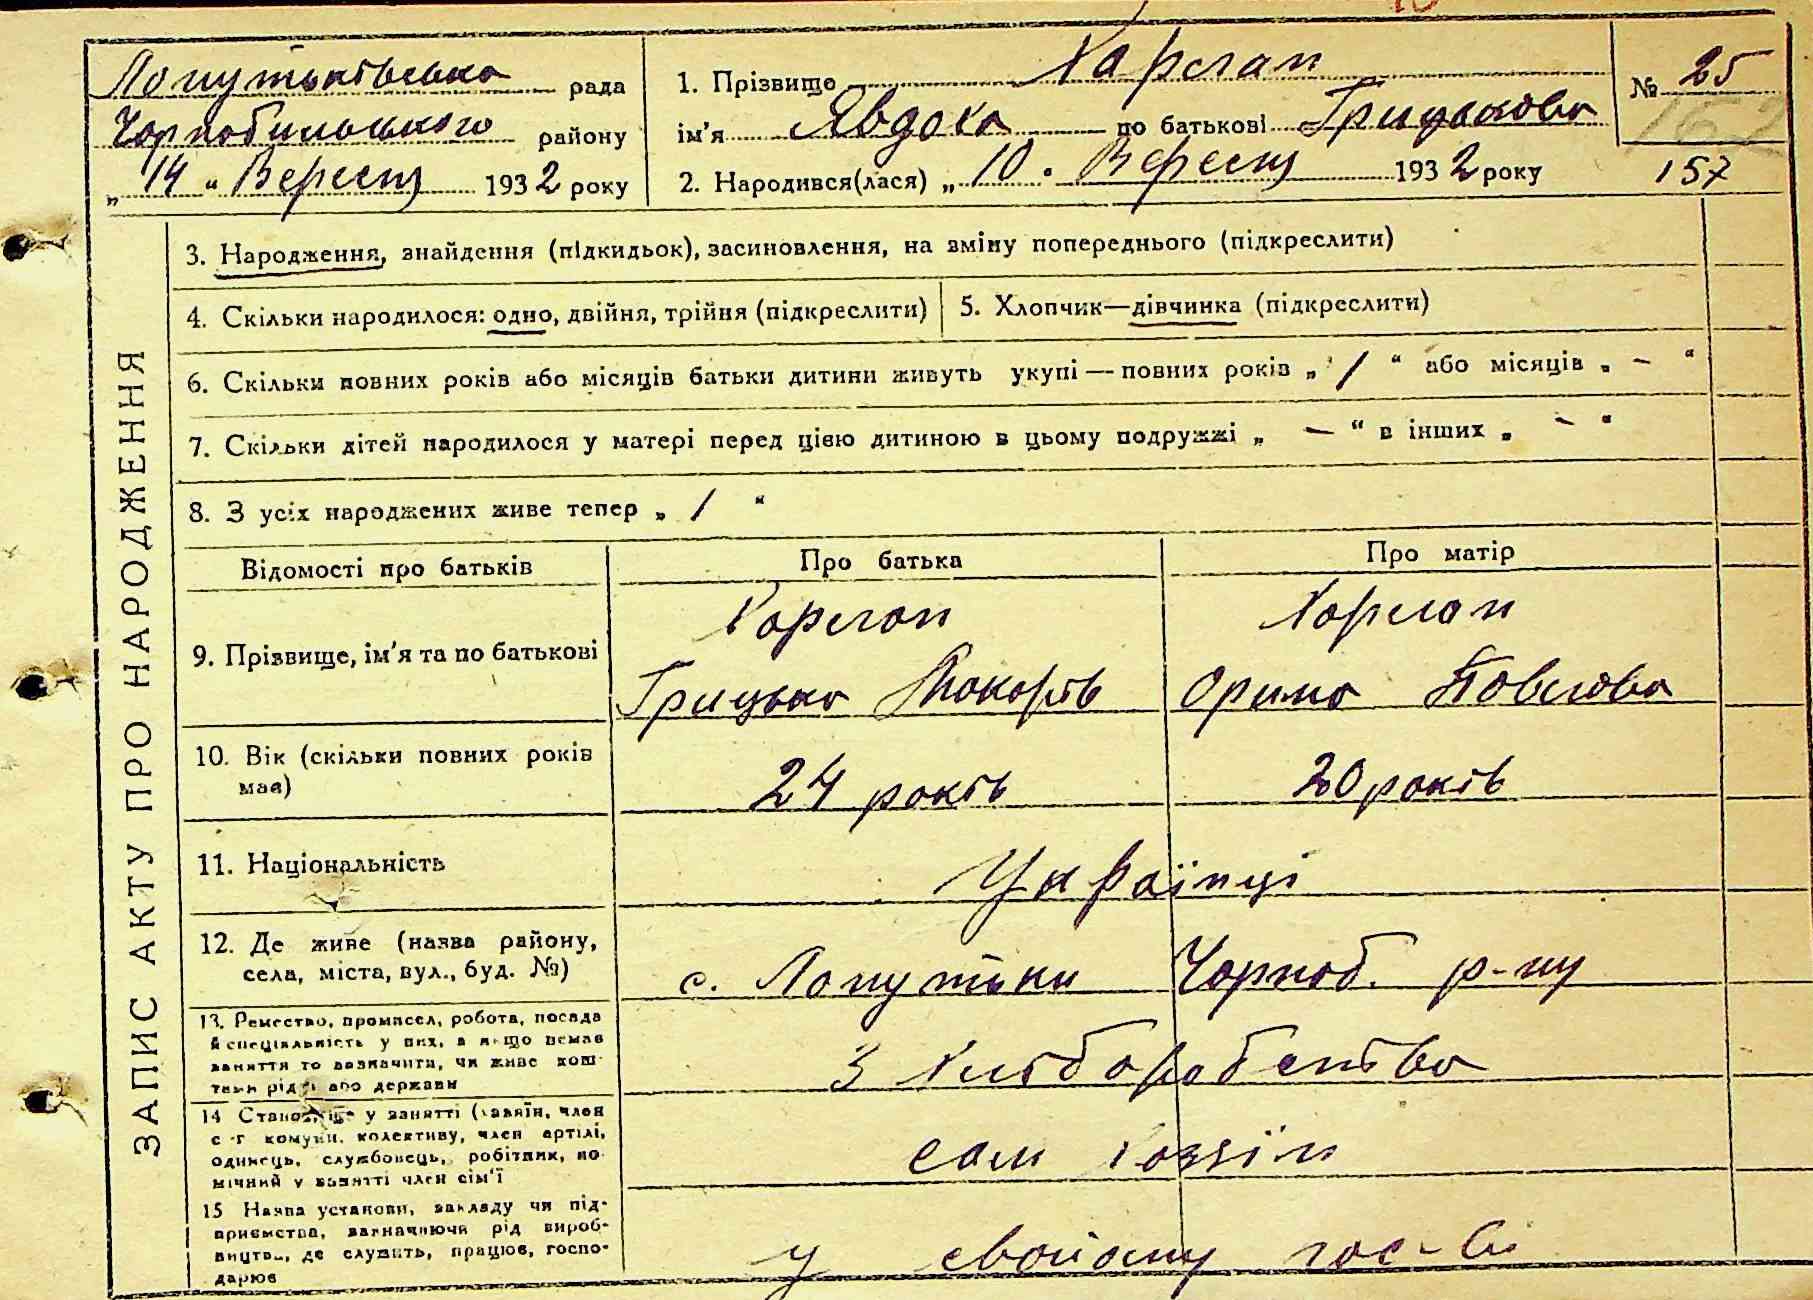 Лопутьківська рада
Чорнобильського району
„ 14 " Вересня 1932 року
1. Прізвище Харлан
ім'я Явдоха по батькові Грицькова
2. Народився(лася) „ 10 " Вересня 1932 року
№ 25
162
157
ЗАПИС АКТУ ПРО НАРОДЖЕННЯ
3. Народження, знайдення (підкидьок), засиновлення, на зміну попереднього (підкреслити)
4. Скільки народилося: одно, двійня, трійня (підкреслити)
5. Хлопчик—дівчинка (підкреслити)
6. Скільки повних років або місяців батьки дитини живуть укупі — повних років „ 1 " або місяців „ – "
7. Скільки дітей народилося у матері перед цією дитиною в цьому подружжі „ — " в інших „ – "
8. З усіх народжених живе тепер „ 1 "
Відомості про батьків
Про батька
Про матір
9. Прізвище, ім'я та по батькові
Харлан
Грицько Макарів
Харлан
Орина Павлова
10. Вік (скільки повних років
має)
24 років
20 років
11. Національність
Українці
12. Де живе (назва району,
села, міста, вул., буд. №)
с. Лопутьки Чорноб. р-ну
13. Ремество, промисел, робота, посада
й спеціяльність у них, а якщо немає
заняття то зазначити, чи живе кош-
тами рідні або держави
З хліборобства
14 Становище у занятті (хазяїн, член
с-г комуни, колективу, член артілі,
одинець, службовець, робітник, по-
мічний у занятті член сім'ї
сам хозяїн
15 Назва установи, закладу чи під-
приємства, зазначаючи рід вироб-
ництва, де служить, працює, госпо-
дарює
у свойому гос-ві